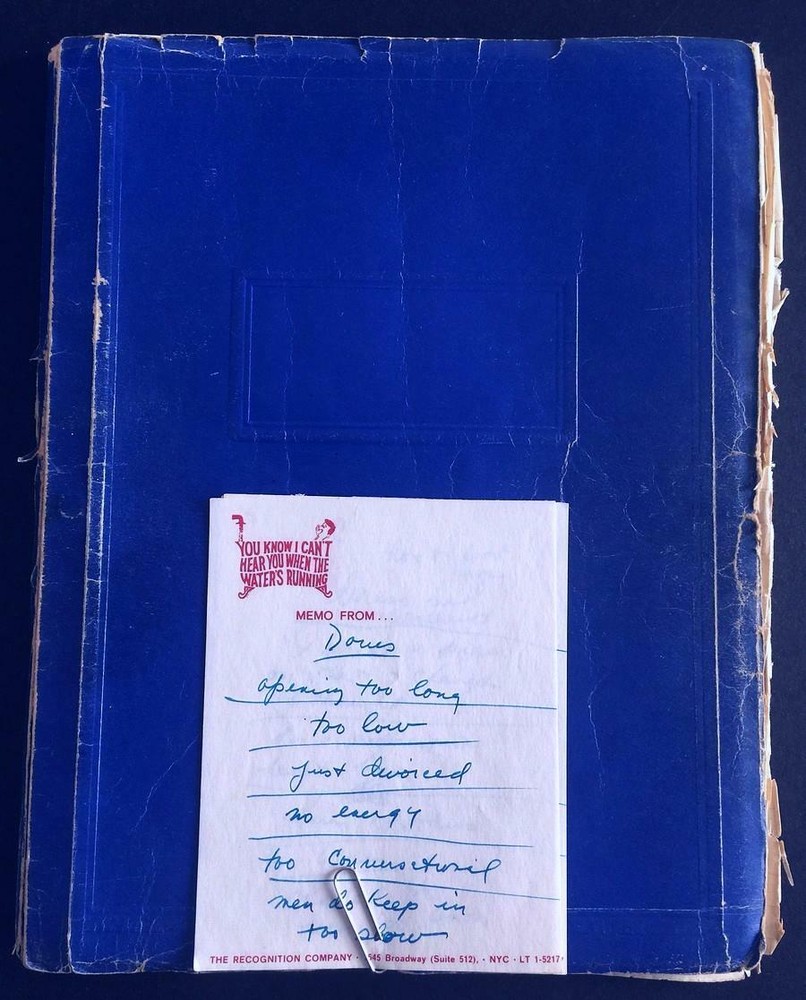 YOU KNOW I CAN'T
HEAR YOU WHEN THE
WATER'S RUNNING
MEMO FROM...
opening too long
too low
just divorced
no energy
too conversational
men do keep in
too slow
THE RECOGNITION COMPANY · 545 Broadway (Suite 512), · NYC · LT 1-5217